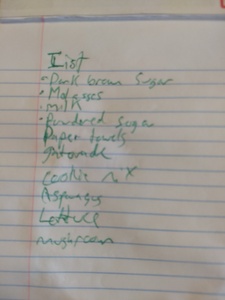 List
- Dark brown Sugar
- Molasses
- milk
- Powdered sugar
Paper towels
gatorade
cookie mix
Asparagus
Lettuce
mushroom